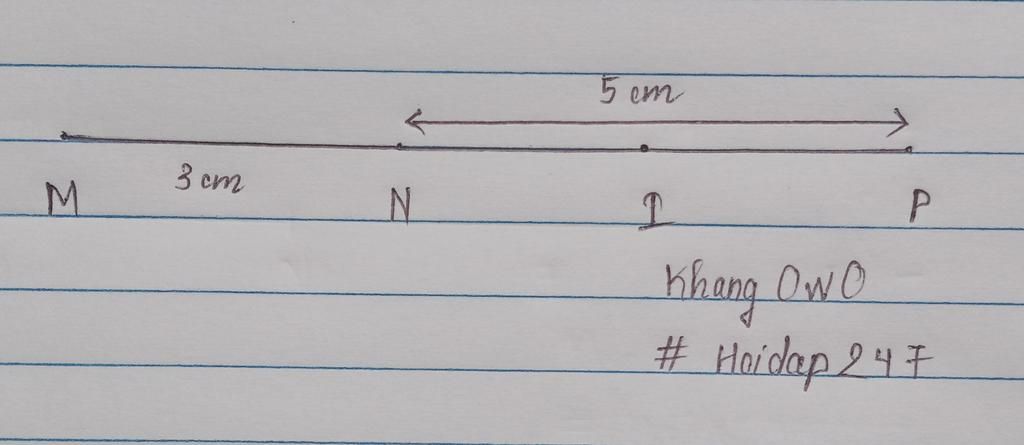 5 cm
3 cm
M N I P
Khang OwO
# Hoidap247